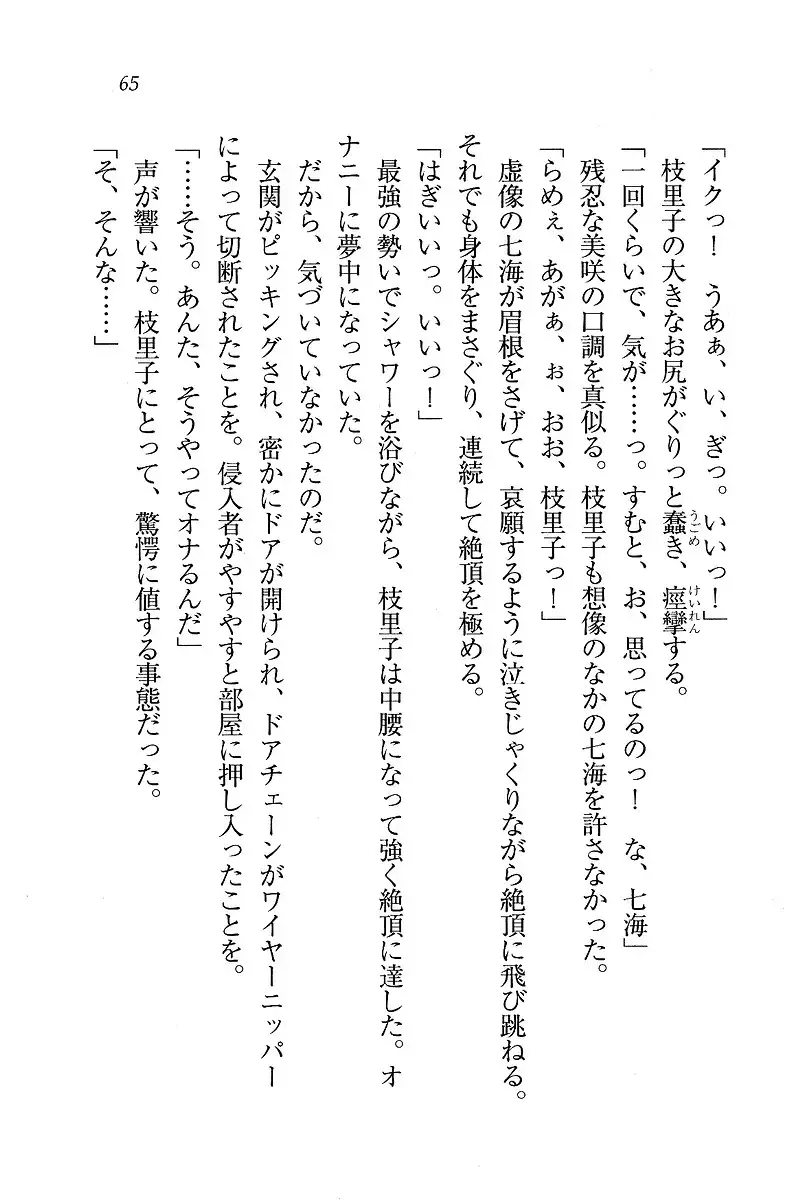 65
「イクっ！　うあぁ、い、ぎっ。いいっ！」
枝里子の大きなお尻がぐりっと蠢き、痙攣する。
うごめ
けいれん
「一回くらいで、気が……っ。すむと、お、思ってるのっ！　な、七海」
残忍な美咲の口調を真似る。枝里子も想像のなかの七海を許さなかった。
「らめぇ、あがぁ、ぉ、おお、枝里子っ！」
虚像の七海が眉根をさげて、哀願するように泣きじゃくりながら絶頂に飛び跳ねる。
それでも身体をまさぐり、連続して絶頂を極める。
「はぎいいっ。いいっ！」
最強の勢いでシャワーを浴びながら、枝里子は中腰になって強く絶頂に達した。オ
ナニーに夢中になっていた。
だから、気づいていなかったのだ。
玄関がピッキングされ、密かにドアが開けられ、ドアチェーンがワイヤーニッパー
によって切断されたことを。侵入者がやすやすと部屋に押し入ったことを。
「……そう。あんた、そうやってオナるんだ」
声が響いた。枝里子にとって、驚愕に値する事態だった。
「そ、そんな……」